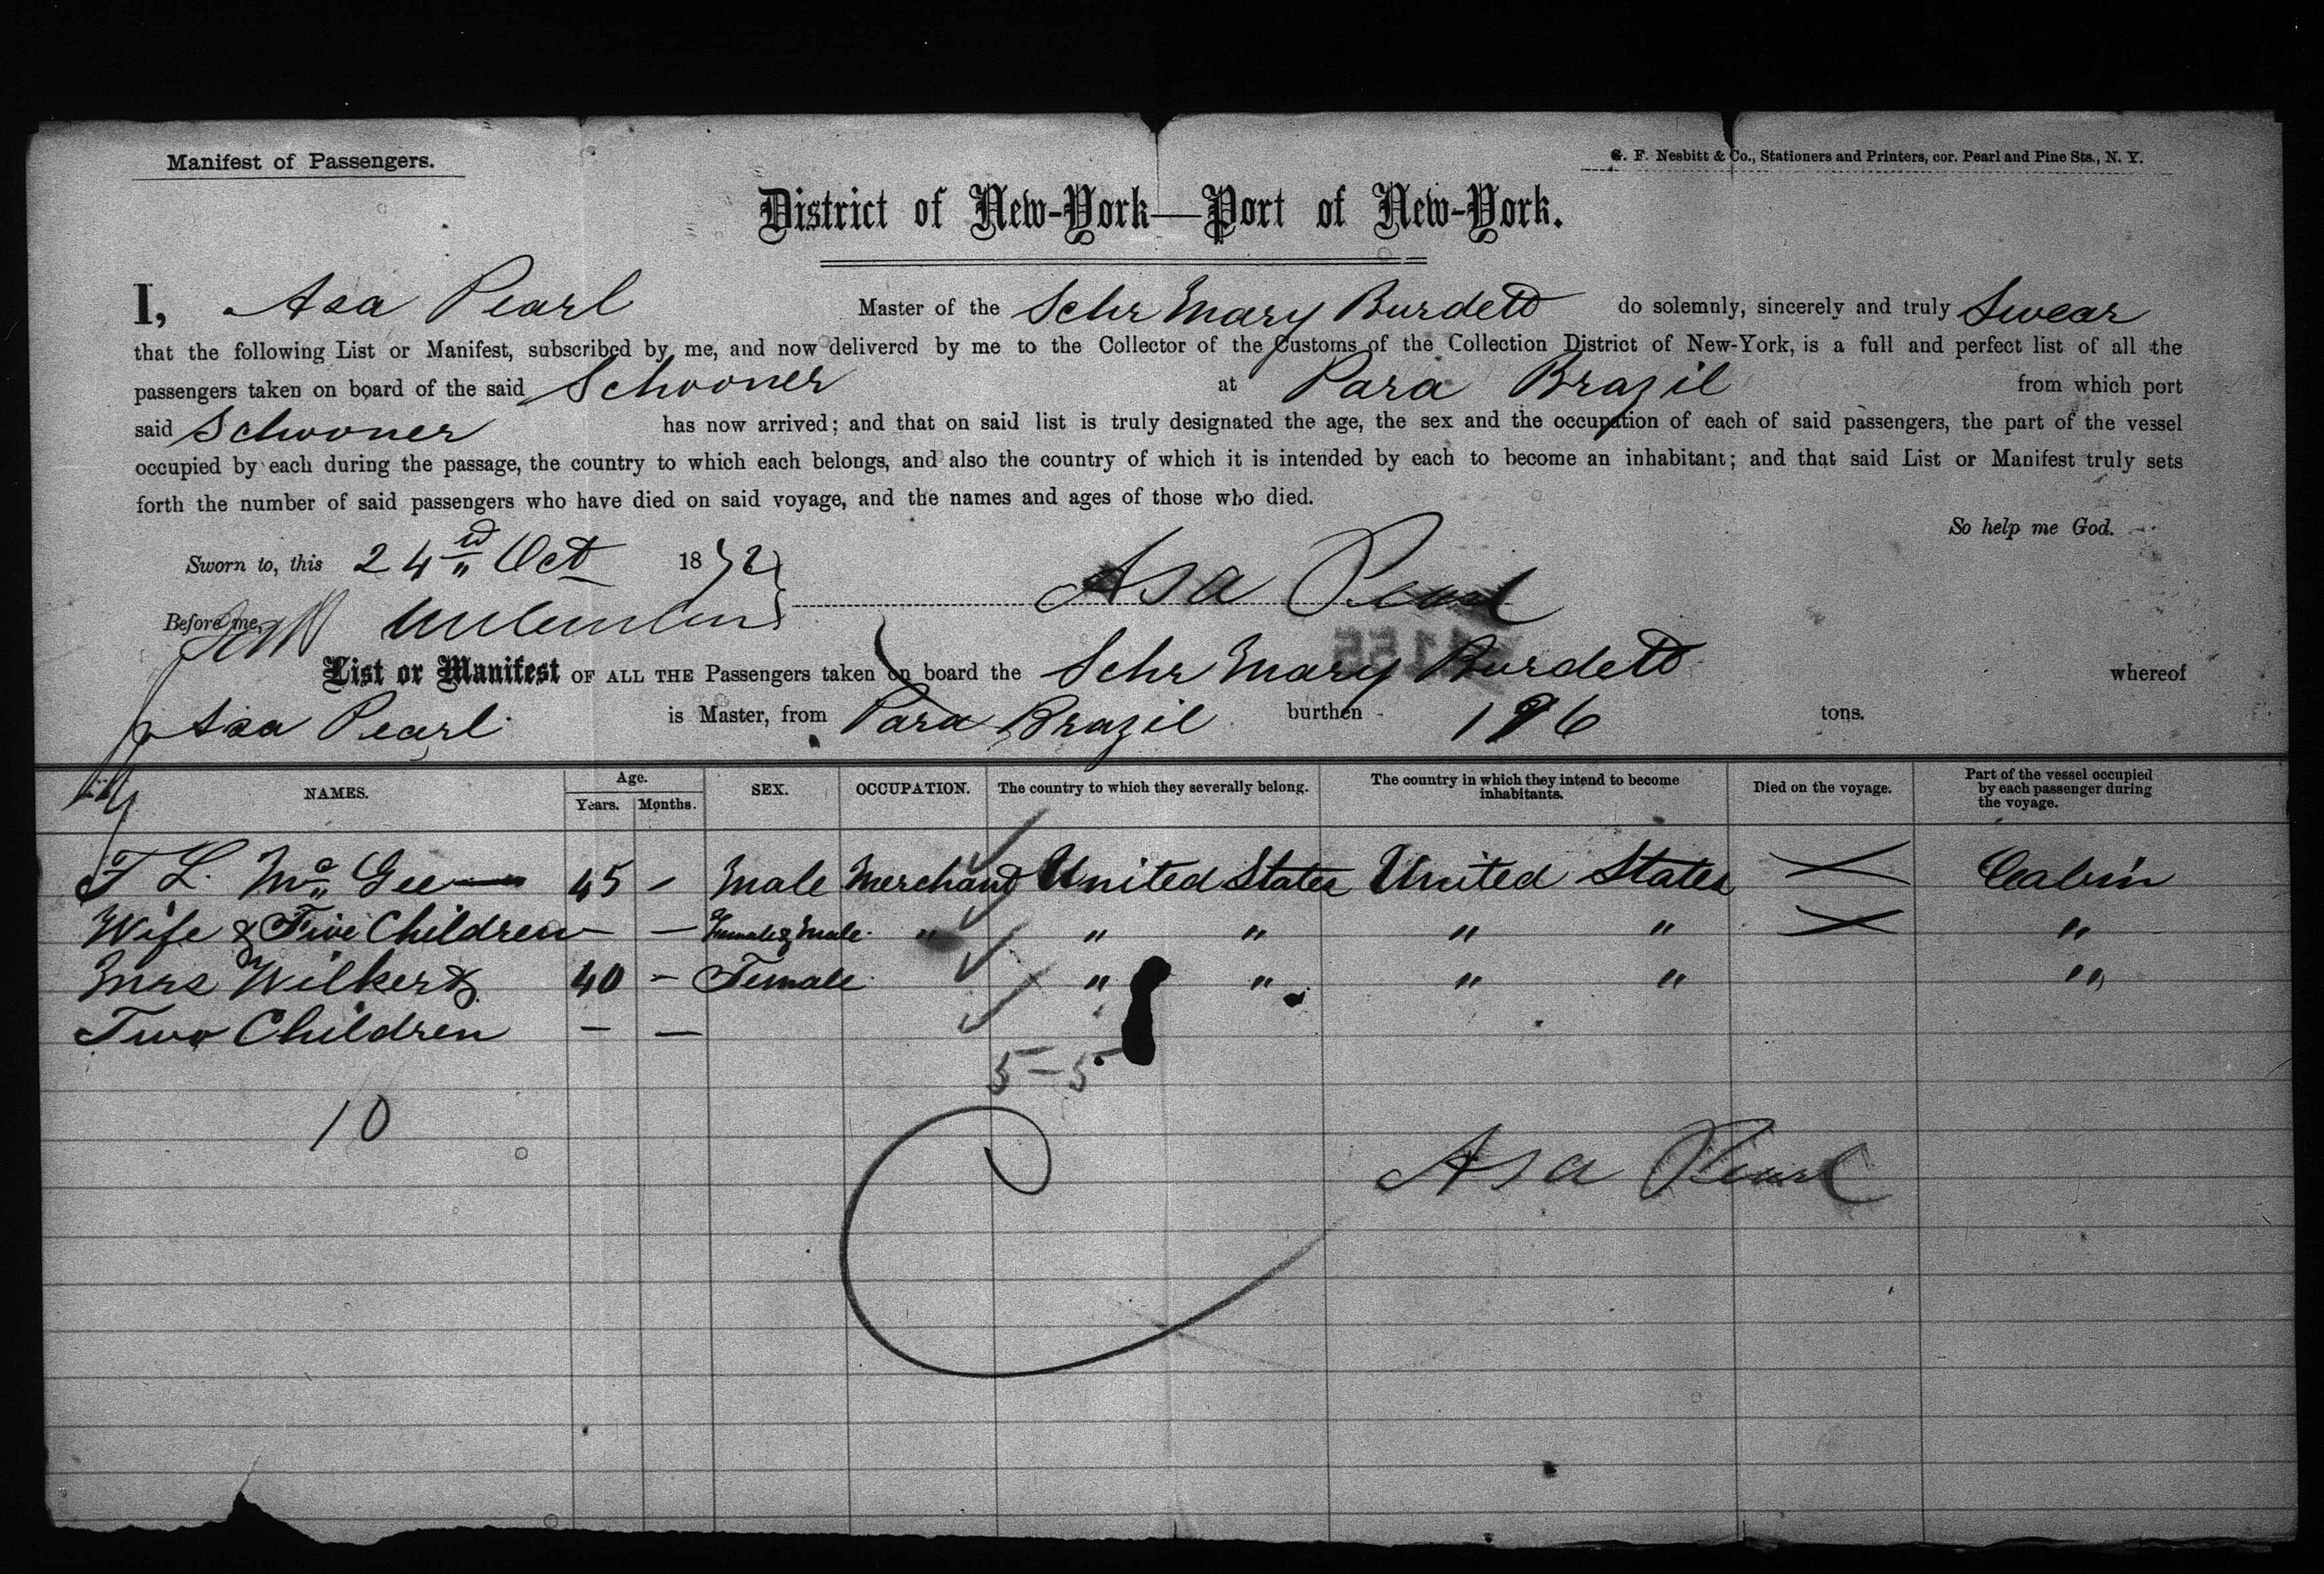 Manifest of Passengers.
G. F. Nesbitt & Co., Stationers and Printers, cor. Pearl and Pine Sts., N. Y.
District of New-York—Port of New-York.
I, Asa Pearl Master of the Schr Mary Burdett do solemnly, sincerely and truly Swear
that the following List or Manifest, subscribed by me, and now delivered by me to the Collector of the Customs of the Collection District of New-York, is a full and perfect list of all the
passengers taken on board of the said Schooner at Para Brazil from which port
said Schooner has now arrived; and that on said list is truly designated the age, the sex and the occupation of each of said passengers, the part of the vessel
occupied by each during the passage, the country to which each belongs, and also the country of which it is intended by each to become an inhabitant; and that said List or Manifest truly sets
forth the number of said passengers who have died on said voyage, and the names and ages of those who died.
So help me God.
Sworn to, this 24 Oct 1872
Asa Pearl
Before me,
List or Manifest OF ALL THE Passengers taken on board the Schr Mary Burdett whereof
Asa Pearl is Master, from Para Brazil burthen 196 tons.
NAMES. Age. Years. Months. SEX. OCCUPATION. The country to which they severally belong. The country in which they intend to become inhabitants. Died on the voyage. Part of the vessel occupied by each passenger during the voyage.
F L. Mc Gee 45 - Male Merchant United States United States Cabin
Wife & Five Children - - Female & Male " " " " " "
Mrs 40 - Female " " " " "
Two Children - -
5-5
10
Asa Pearl